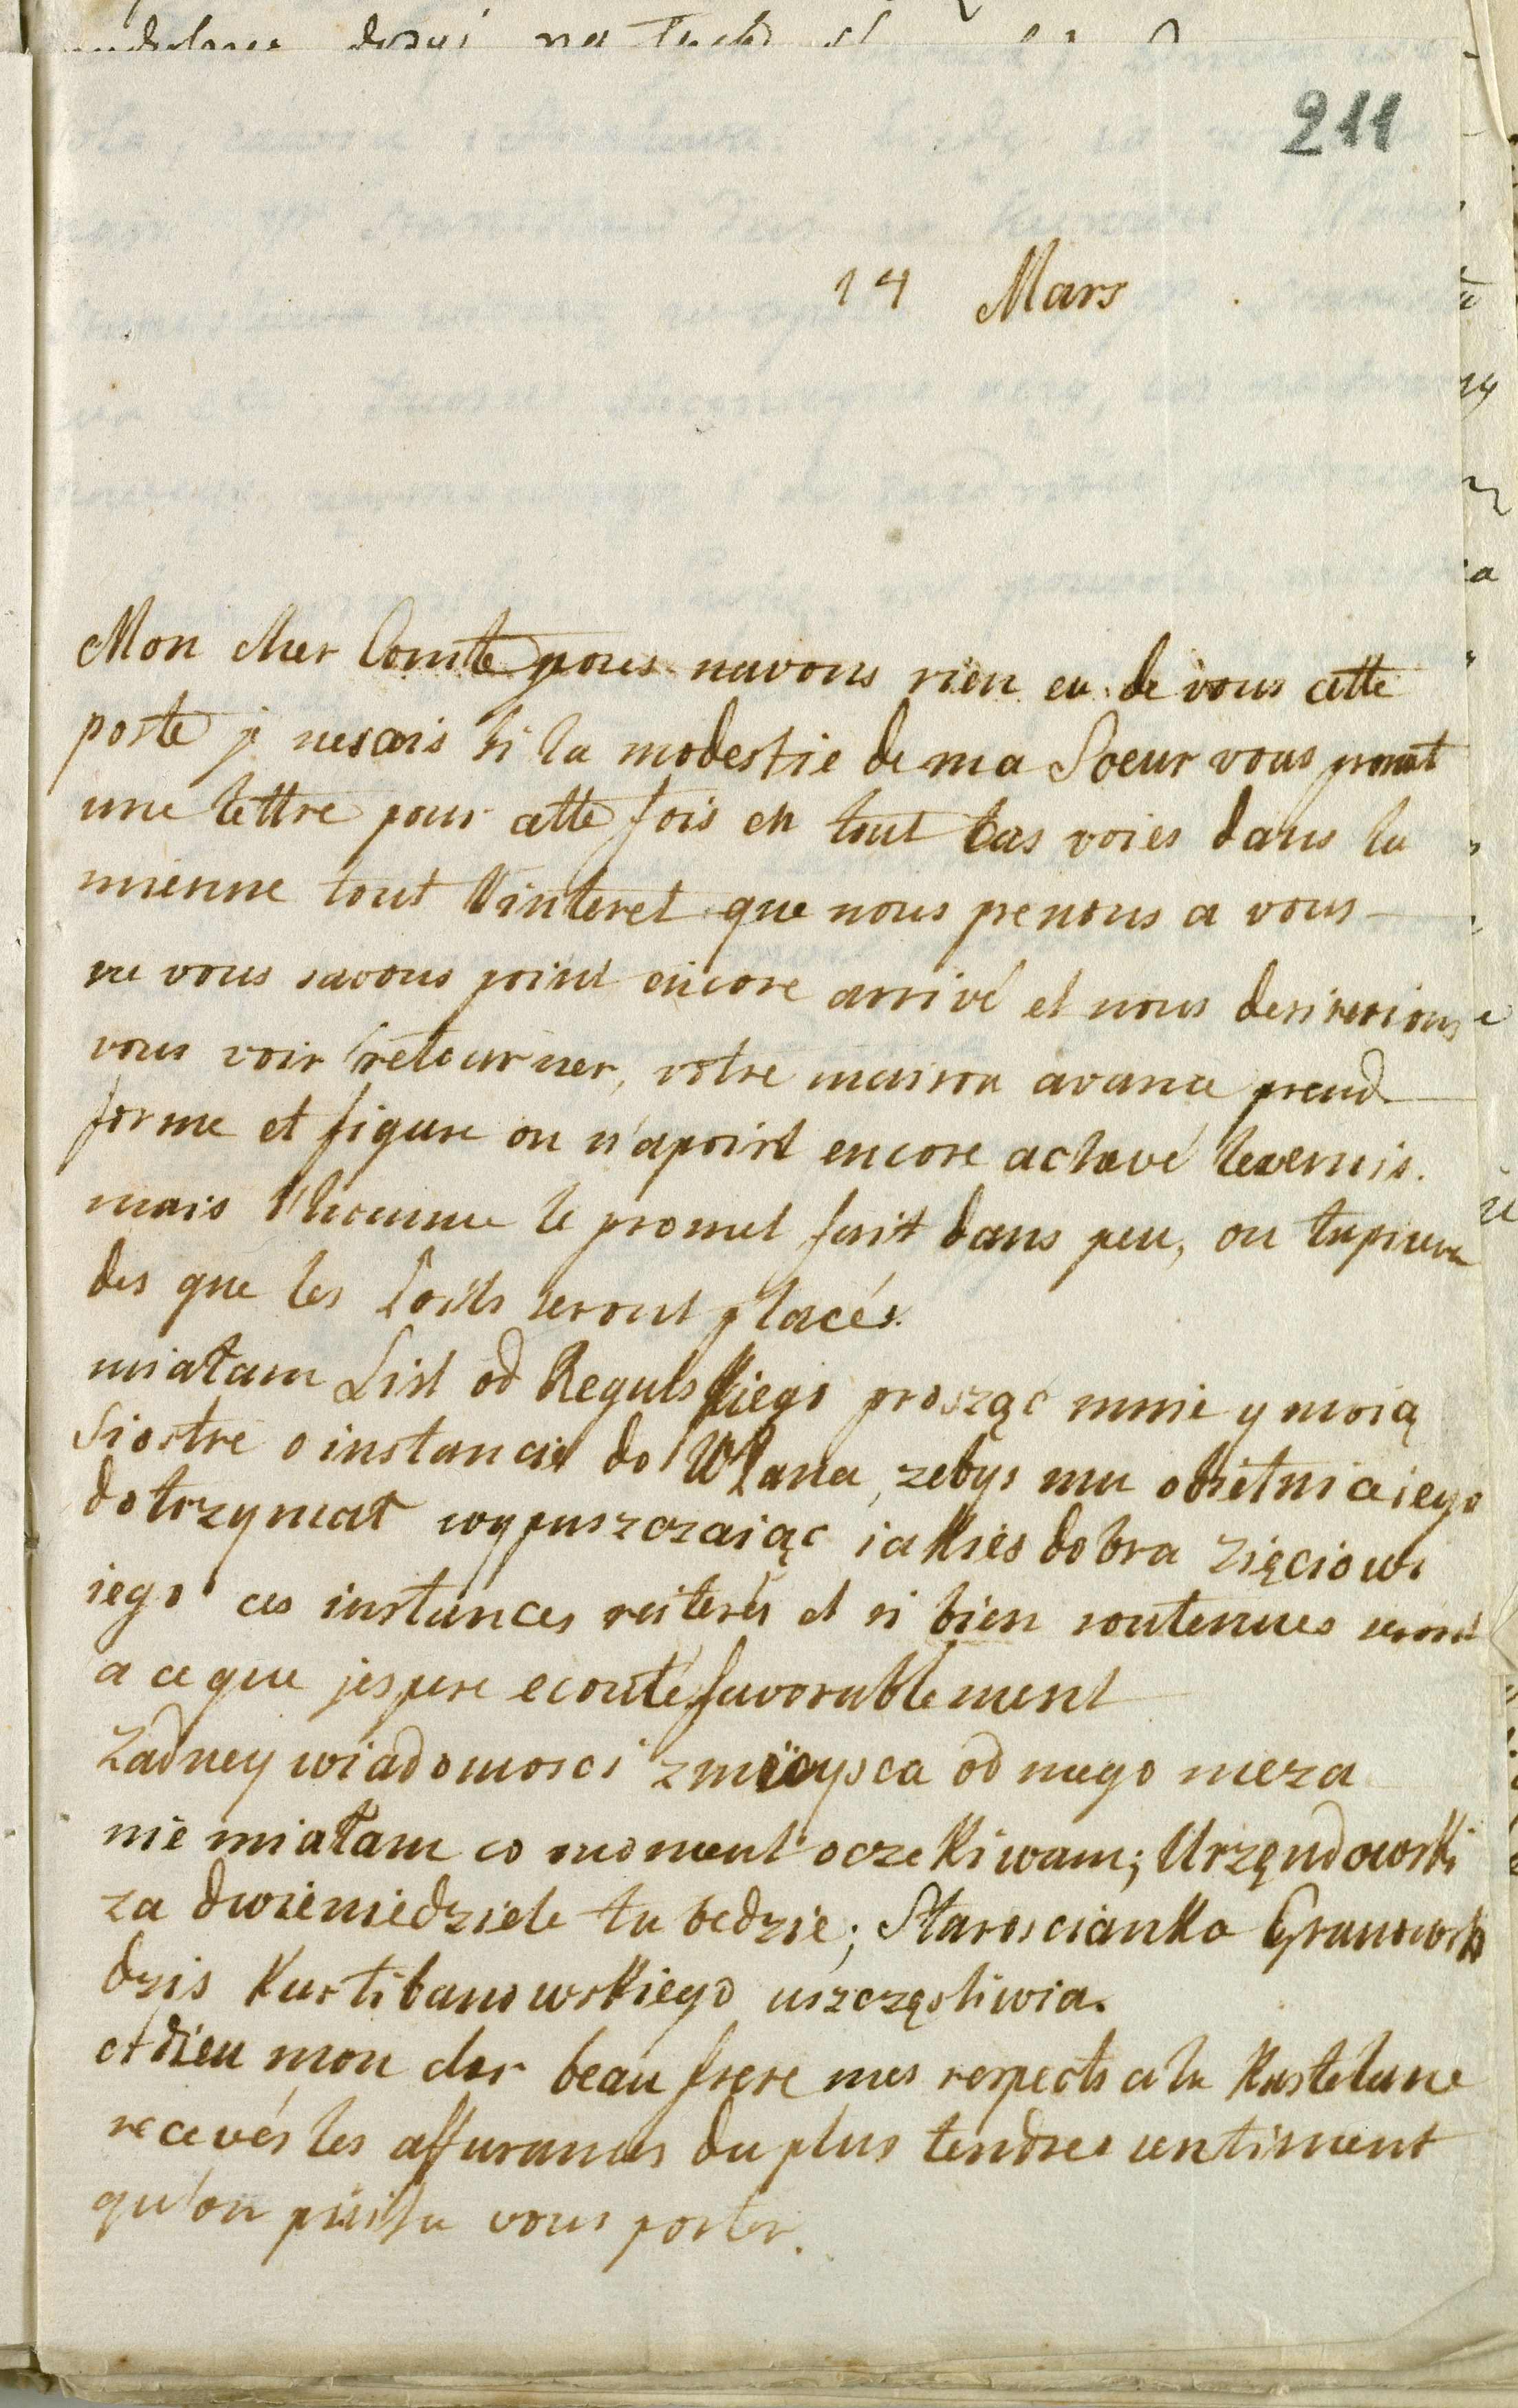 211
14 Mars
Mon cher Comte nous navons rien eu de vous cette
poste je nesais si la modestie de ma Soeur vous promet
une lettre pour cette fois en tout Cas voies dans la
mienne tout l'interet que nous prenons a vous
ne vous savons point encore arrivé et nous desirerions
vous voir retourner, votre maison avance prend
forme et figure on n'apoint encore achevé levernis.
mais l'homme le promet finit dans peu, on tapissera
des que les Poëls seront placés.
miałam List od Regulskiego prosząc mnie y moią
Siostre o instancie do WPana, zebys mu obietnice iego
dotrzymał wypuszczaiąc iakies dobra Zięciowi
iego ces instances reiterés et si bien soutenues seront
a ceque jespere ecouté favorablement
Zadney wiadomosci zmieysca od mego meza
nie miałam co moment oczekiwam; Urzęndowski
za dwie niedziele tu bedzie; Staroscianka Granowska
dzis Kurtibanowskiego uszczęsliwia.
adieu mon cher beau frere mes respects a la Kastelane
recevés les assurances du plus tendres sentiment
qu'on puisse vous porter.